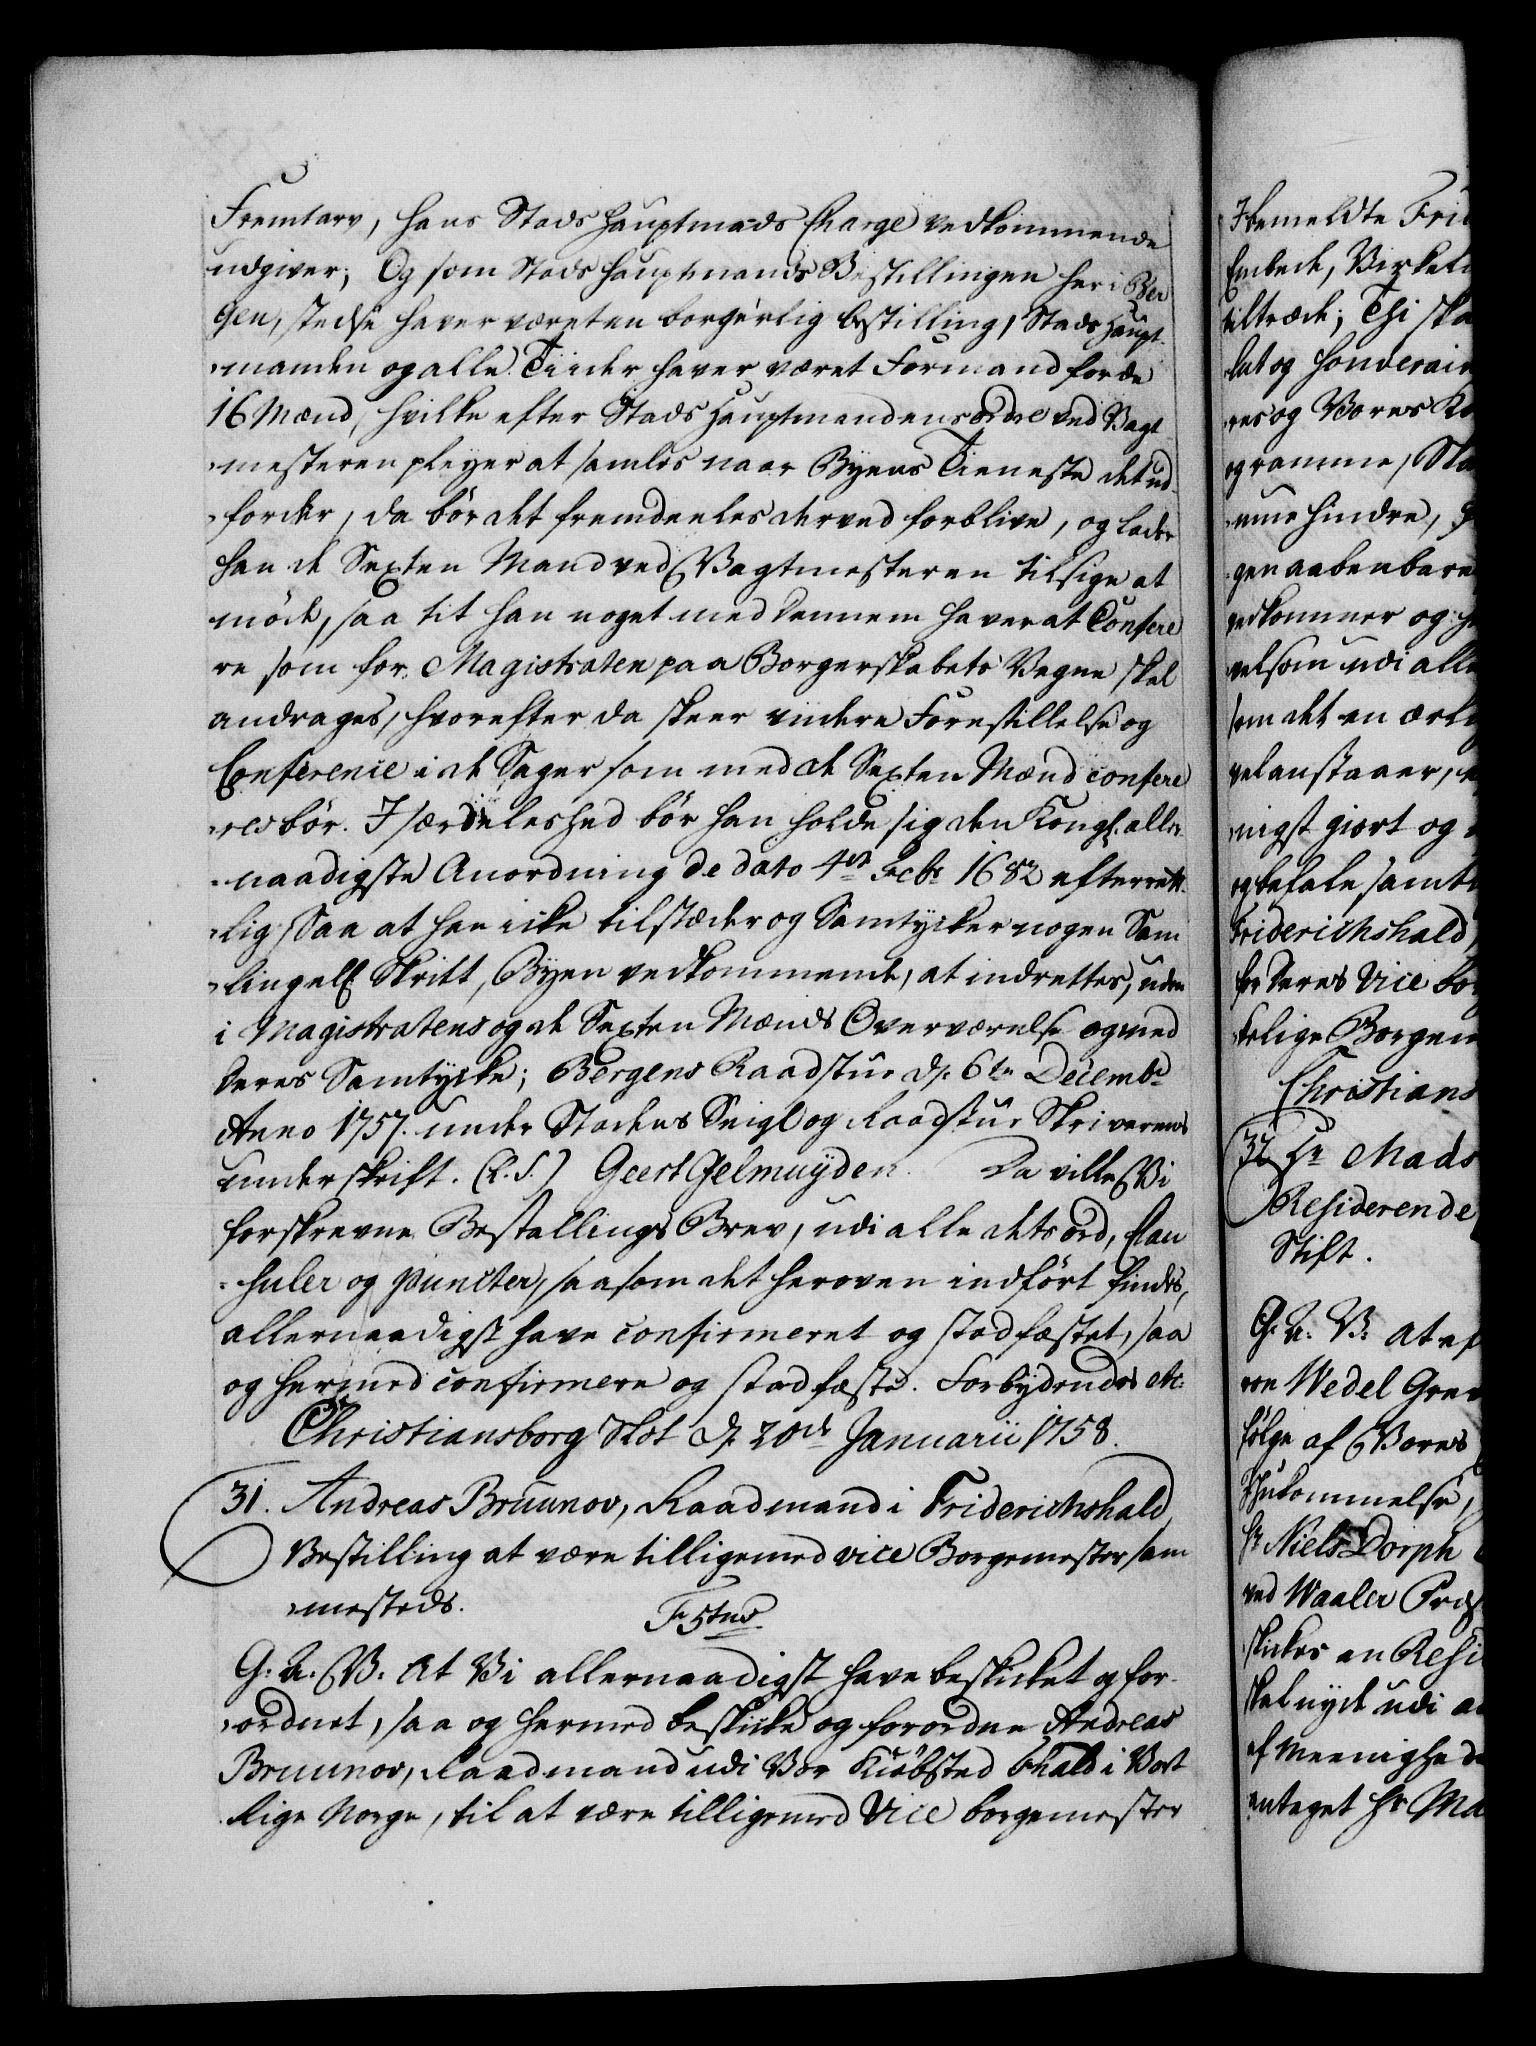 Fremtarv, hans Stads Hauptmands Charge vedkommende
udgiver; Og som Stads Hauptmands Bestillingen her i Ber
gen, stedse haver været en borgerlig bestilling, Stads Haupt-
manden og alle Tiider haver været Formand for de
16 Mænd, hvilke efter Stads Hauptmandens ordre ved Vagt
mesteren pleyer at samles naar Byens Tieneste det ud-
fordrer, da bör det fremdeeles derved forblive, og lader
han de Sexten Mænd ved Vagtmesteren tilsige at
möde, saa tit han noget med dennem haver at Confere
re som for Magistraten paa Borgerskabets Vegne skal
andrages, hvorefter da skeer videre Forestillelse og
Conference i de Sager som med de Sexten Mænd confere
res bör. I særdeleshed bör han holde sig den Kongl. aller
naadigste Anordning de dato 4de Febr 1682 efterrett-
lig Saa at han icke tilstæder og Samtycker nogen Sam
ling ell Skrift, Byen vedkommende, at indrettes, uden
i Magistratens og de Sexten Mænds Overværelse og med
deres Samtycke; Bergens Raadstue d. 6te Decembr
Anno 1757. under Stadens Seigl og Raadstue Skriverens
underskrift. (L. S.) Geert Gelmuyden. Da ville Vi
forskrevne Bestallings Brev, udi alle dets ord, Clau
suler og puncter, saasom det heroven indfört findes,
allernaadigst have confirmeret og stadfæstet, saa
og hermed confirmere og stadfæste. Forbydendes etc:
Christiansborg Slot d. 20de Januarii 1758.
31. Andreas Bruunov, Raadmand i Friderichshald,
Bestilling at være tilligemed vice Borgemester sam
mesteds.
F 5tus
G. A. V. At Vi allernaadigst have beskicket og for-
ordnet, saa og hermed beskicke og forordne Andreas
Bruunov, Raadmand udi Vor Kiöbsted Fhald i Vort
Rige Norge, til at være tilligemed Vice borgemester
Ibemeldte Frid
Embede, Virkel
tiltræde; Thi ska
lut og Souverain
res og Vores Ko
og ramme, Ska
evne hindre,
gen aabenbare
vedkommer og
velsom udi alle
som det en ærl
vel anstaaer,
nigst giort og
og befale samt
Friderichshald,
for deres Vice bor
kelige Borgem
Christians
32. Hr Mads
Residerende
Stift.
G. A. V. At ef
von Wedel Grev
fölge af Vores
Ihukommelse,
Hr Niels Dorph
ved Waaler Præs
skickes en Resi
skal nyde udi a
af Meenighede
antaget Hr Ma